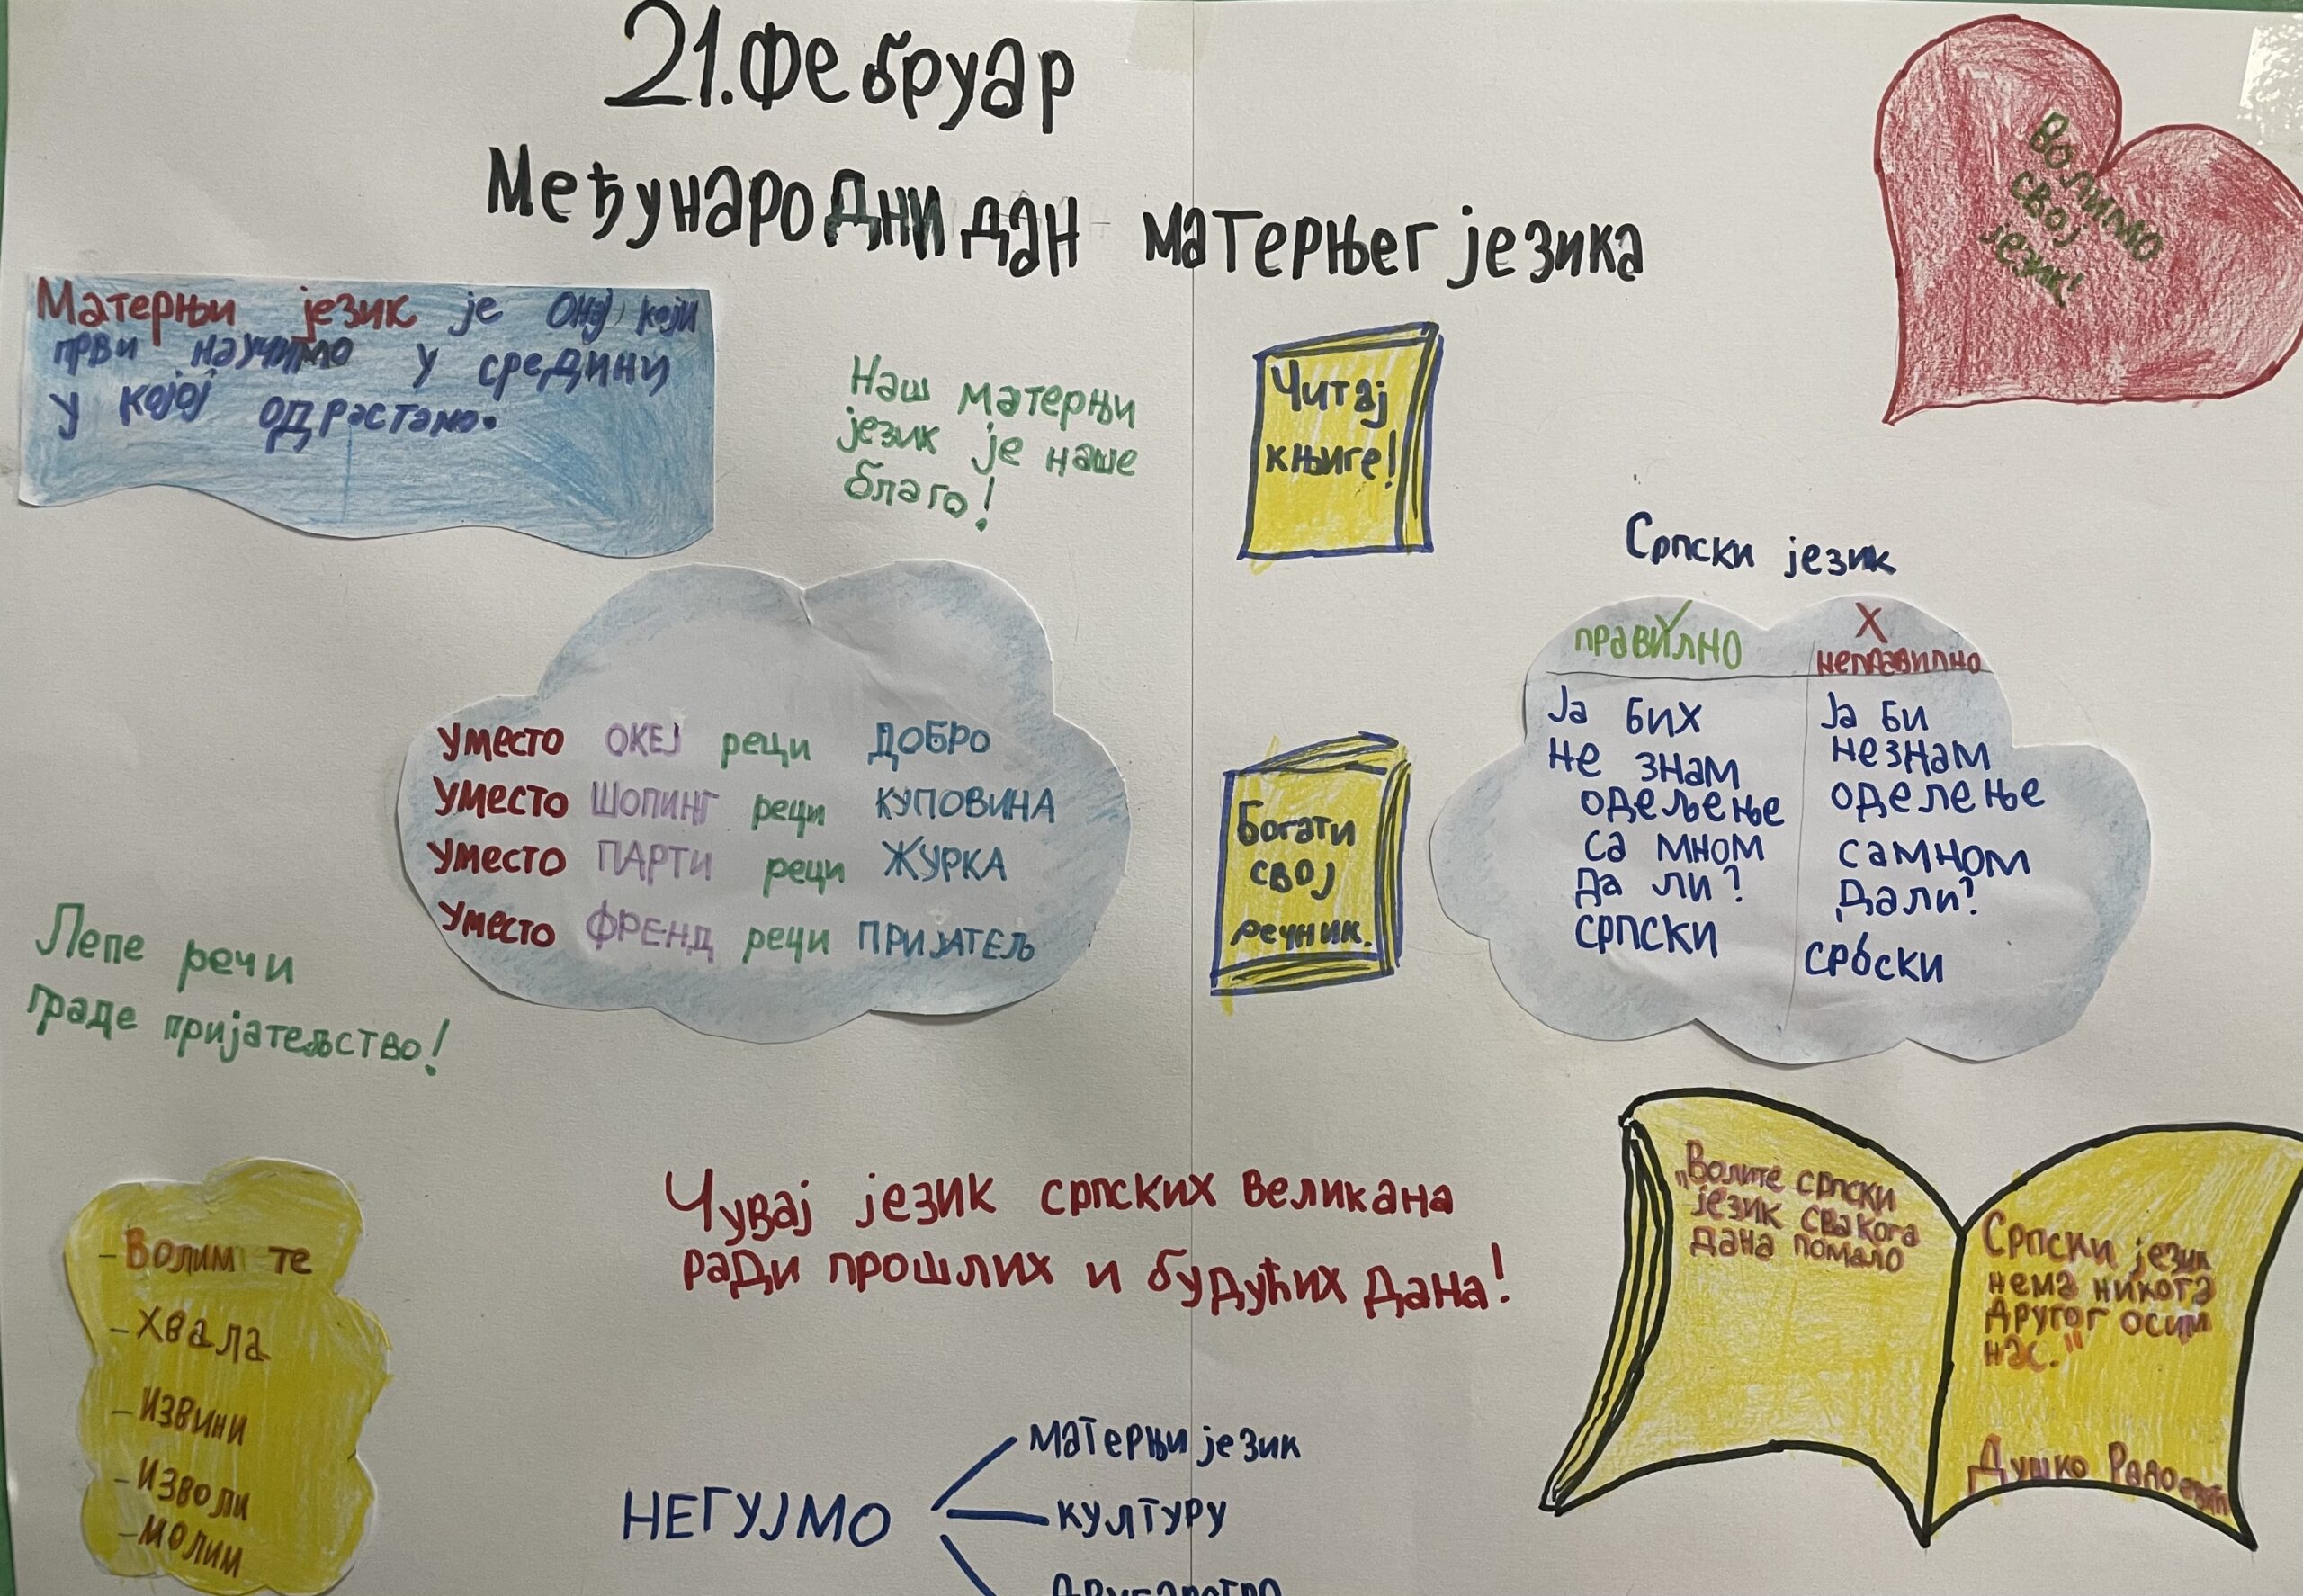 21. Фебруар
Међународни дан матерњег језика
Волимо
свој
језик!
Матерњи језик је онај који
први научимо у средини
у којој одрастамо.
Наш матерњи
језик је наше
благо!
Читај
књиге!
Српски језик
уместо ОКЕЈ реци ДОБРО
уместо ШОПИНГ реци КУПОВИНА
уместо ПАРТИ реци ЖУРКА
уместо ФРЕНД реци ПРИЈАТЕЉ
Богати
свој
речник.
правилно X неправилно
Ја бих Ја би
не знам незнам
одељење оделење
са мном самном
да ли? дали?
српски србски
Лепе речи
граде пријатељство!
- Волим те
- Хвала
- Извини
- Изволи
- Молим
Чувај језик српских великана
ради прошлих и будућих дана!
„Волите српски
језик свакога
дана помало
Српски језик
нема никога
другог осим
нас."
Душко
НЕГУЈМО
матерњи језик
културу